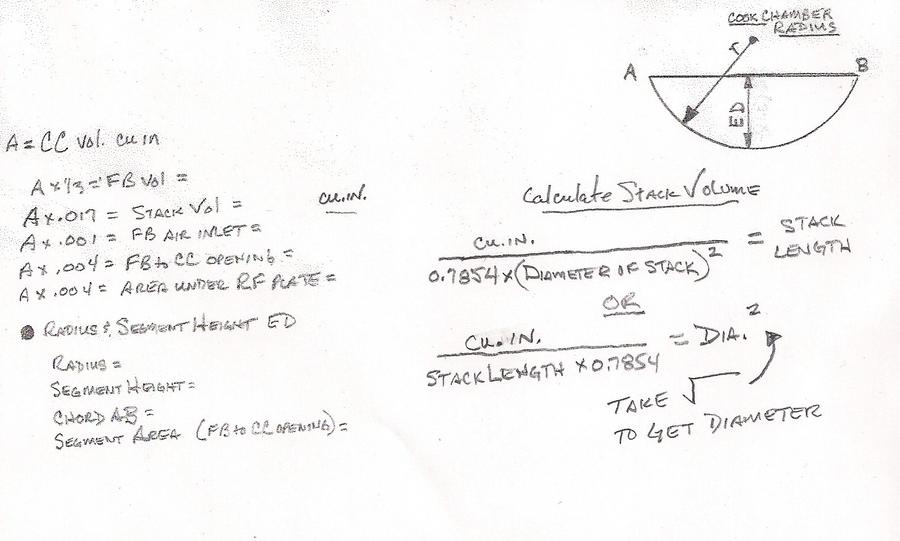 COOK CHAMBER
RADIUS
r
A
B
ED
A = CC Vol. cu in
A x 1/3 = FB Vol =
A x .017 = STACK Vol = cu.IN.
A x .001 = FB AIR INLET =
A x .004 = FB to CC OPENING =
A x .004 = AREA UNDER RF PLATE =
● RADIUS & SEGMENT HEIGHT ED
RADIUS =
SEGMENT HEIGHT =
CHORD AB =
SEGMENT AREA (FB to CC OPENING) =
Calculate STACK VOLUME
CU.IN.
0.7854 x (DIAMETER OF STACK)² = STACK LENGTH
OR
CU. IN.
STACK LENGTH x 0.7854 = DIA.²
TAKE √
TO GET DIAMETER